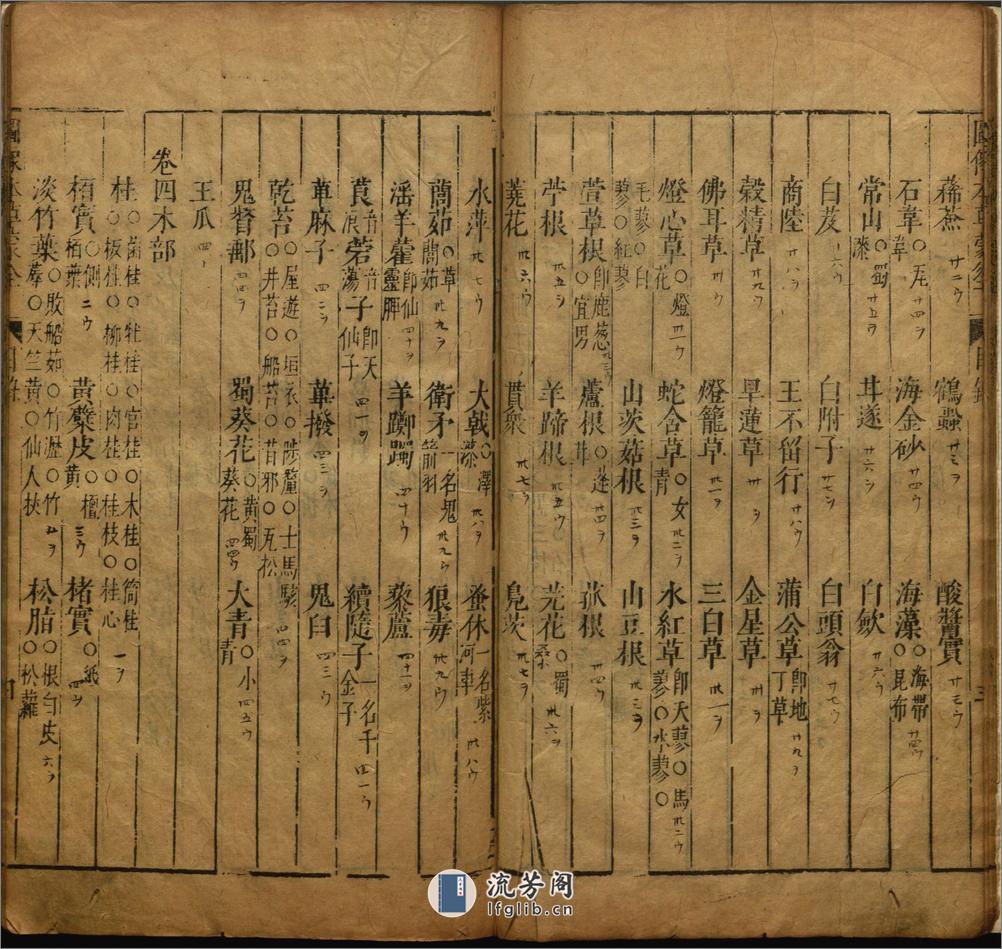 豨薟 廿二ウ 鶴蝨 廿三ヲ 酸漿實 廿三ウ
石韋 ○瓦韋 廿四ヲ 海金砂 廿四ウ 海藻 ○海帶○昆布 廿四ウ
常山 ○蜀漆 廿五ヲ 甘遂 廿六ヲ 白歛 廿六ウ
白芨 廿六ウ 白附子 廿七ヲ 白頭翁 廿七ウ
商陸 廿八ヲ 王不留行 廿八ウ 蒲公草 即地丁草 廿九ヲ
穀精草 廿九ウ 旱蓮草 卅ヲ 金星草 卅ヲ
佛耳草 卅ウ 燈籠草 卅一ヲ 三白草 卅一ウ
燈心草 ○燈花 卅一ウ 蛇含草 ○女青 卅二ヲ 水紅草 即天蓼○馬蓼○水蓼○ 卅二ウ
毛蓼○白蓼○紅蓼 山茨菇根 卅三ヲ 山豆根 卅三ヲ
萱草根 即鹿葱○宜男 卅三ウ 蘆根 ○蓬茸 卅四ヲ 苽根 卅四ウ
苧根 卅五ヲ 羊蹄根 卅五ウ 芫花 ○蜀桑 卅六ヲ
蕘花 卅六ウ 貫衆 卅七ヲ 鳧茨 卅七ヲ
水萍 卅七ウ 大戟 ○澤漆 卅八ヲ 蚤休 一名紫河車 卅八ウ
藺茹 ○草藺茹 卅九ヲ 衛矛 一名鬼箭羽 卅九ウ 狼毒 卅九ウ
滛羊藿 即仙靈脾 四十ヲ 羊躑躅 四十ウ 藜蘆 四十一ヲ
莨音浪菪音蕩子 即天仙子 四十一ヲ 續隨子 一名千金子 四十一ウ
萆麻子 四十二ウ 蓽撥 四十三ヲ 鬼臼 四十三ウ
乾苔 ○屋遊○垣衣○陟釐○土馬騣○井苔○船苔○昔邪○瓦松 四十四ヲ
鬼督郵 四十四ヲ 蜀葵花 ○黃蜀葵花 四十四ウ 大青 ○小青 四十五ウ
王瓜
卷四木部
桂 ○菌桂○牡桂○官桂○木桂○筒桂○板桂○柳桂○肉桂○桂枝○桂心 一ヲ
栢實 ○側栢葉 二ウ 黃蘗皮 ○檀黃 三ウ 楮實 ○紙 四ヲ
淡竹葉 ○敗船茹○竹瀝○竹䔵○天竺黃○仙人杖 五ヲ 松脂 ○根白皮○松蘿 六ヲ
流芳阁
lfglib.cn